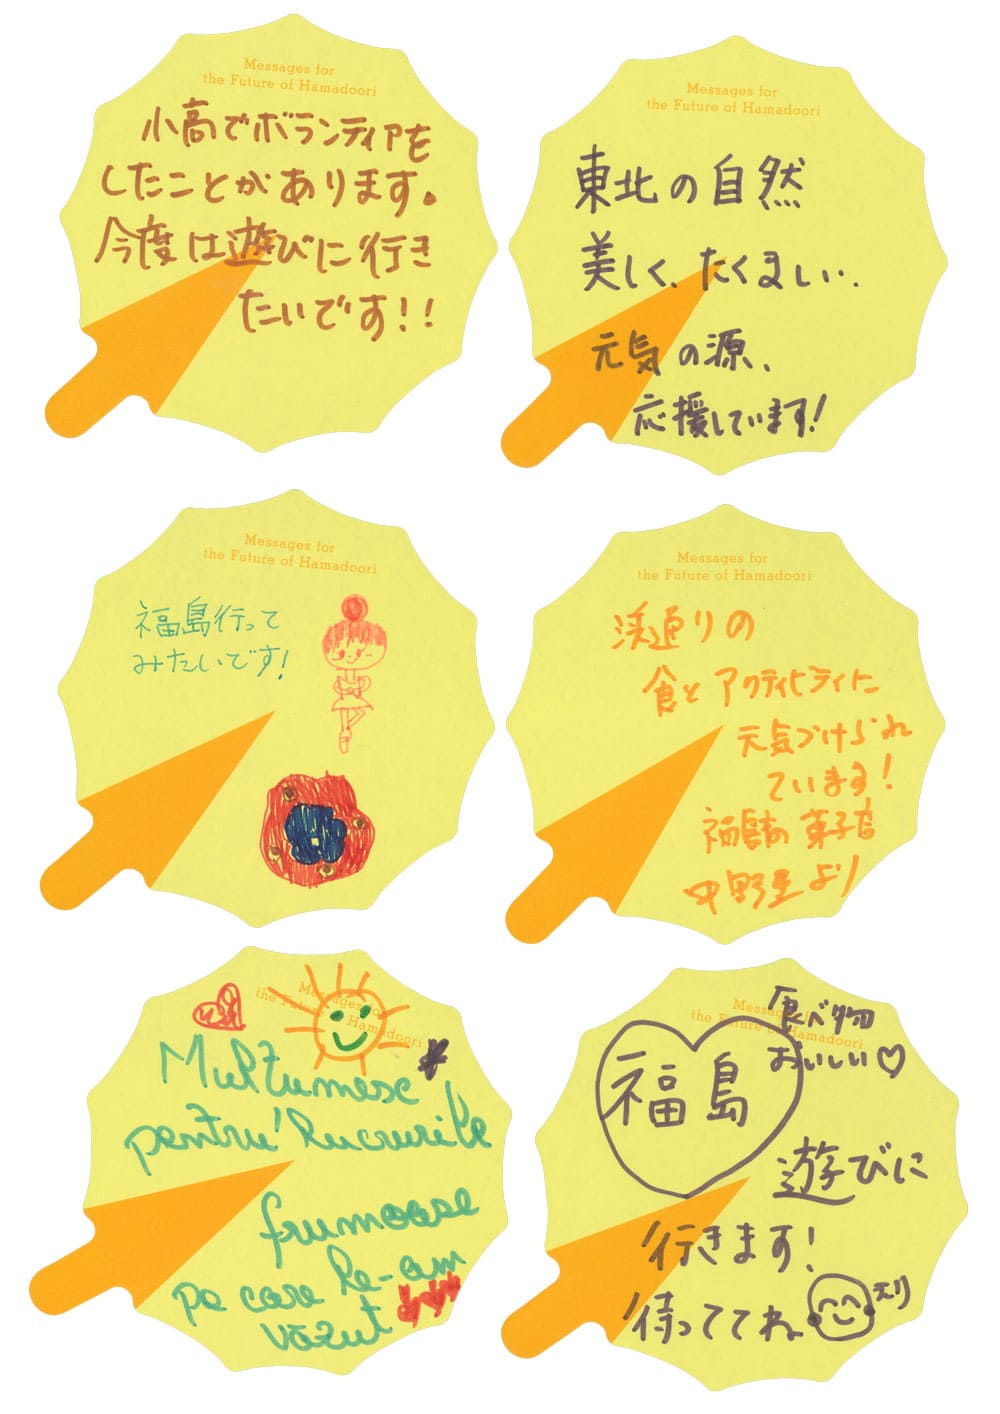 Messages for
the Future of Hamadoori
小高でボランティアを
したことがあります。
今度は遊びに行き
たいです!!
Messages for
the Future of Hamadoori
東北の自然
美しく、たくましい.
元気の源、
応援しています!
Messages for
the Future of Hamadoori
福島行って
みたいです!
Messages for
the Future of Hamadoori
浜通りの
食とアクティビティに
元気づけられ
ています!
福島市の菓子店
中野屋より
Messages for
the Future of Hamadoori
Mulțumesc
pentru lucrurile
frumoase
pe care le-am
văzut
Messages for
the Future of Hamadoori
食べ物
おいしい♡
福島
遊びに
行きます!
待っててね
えり